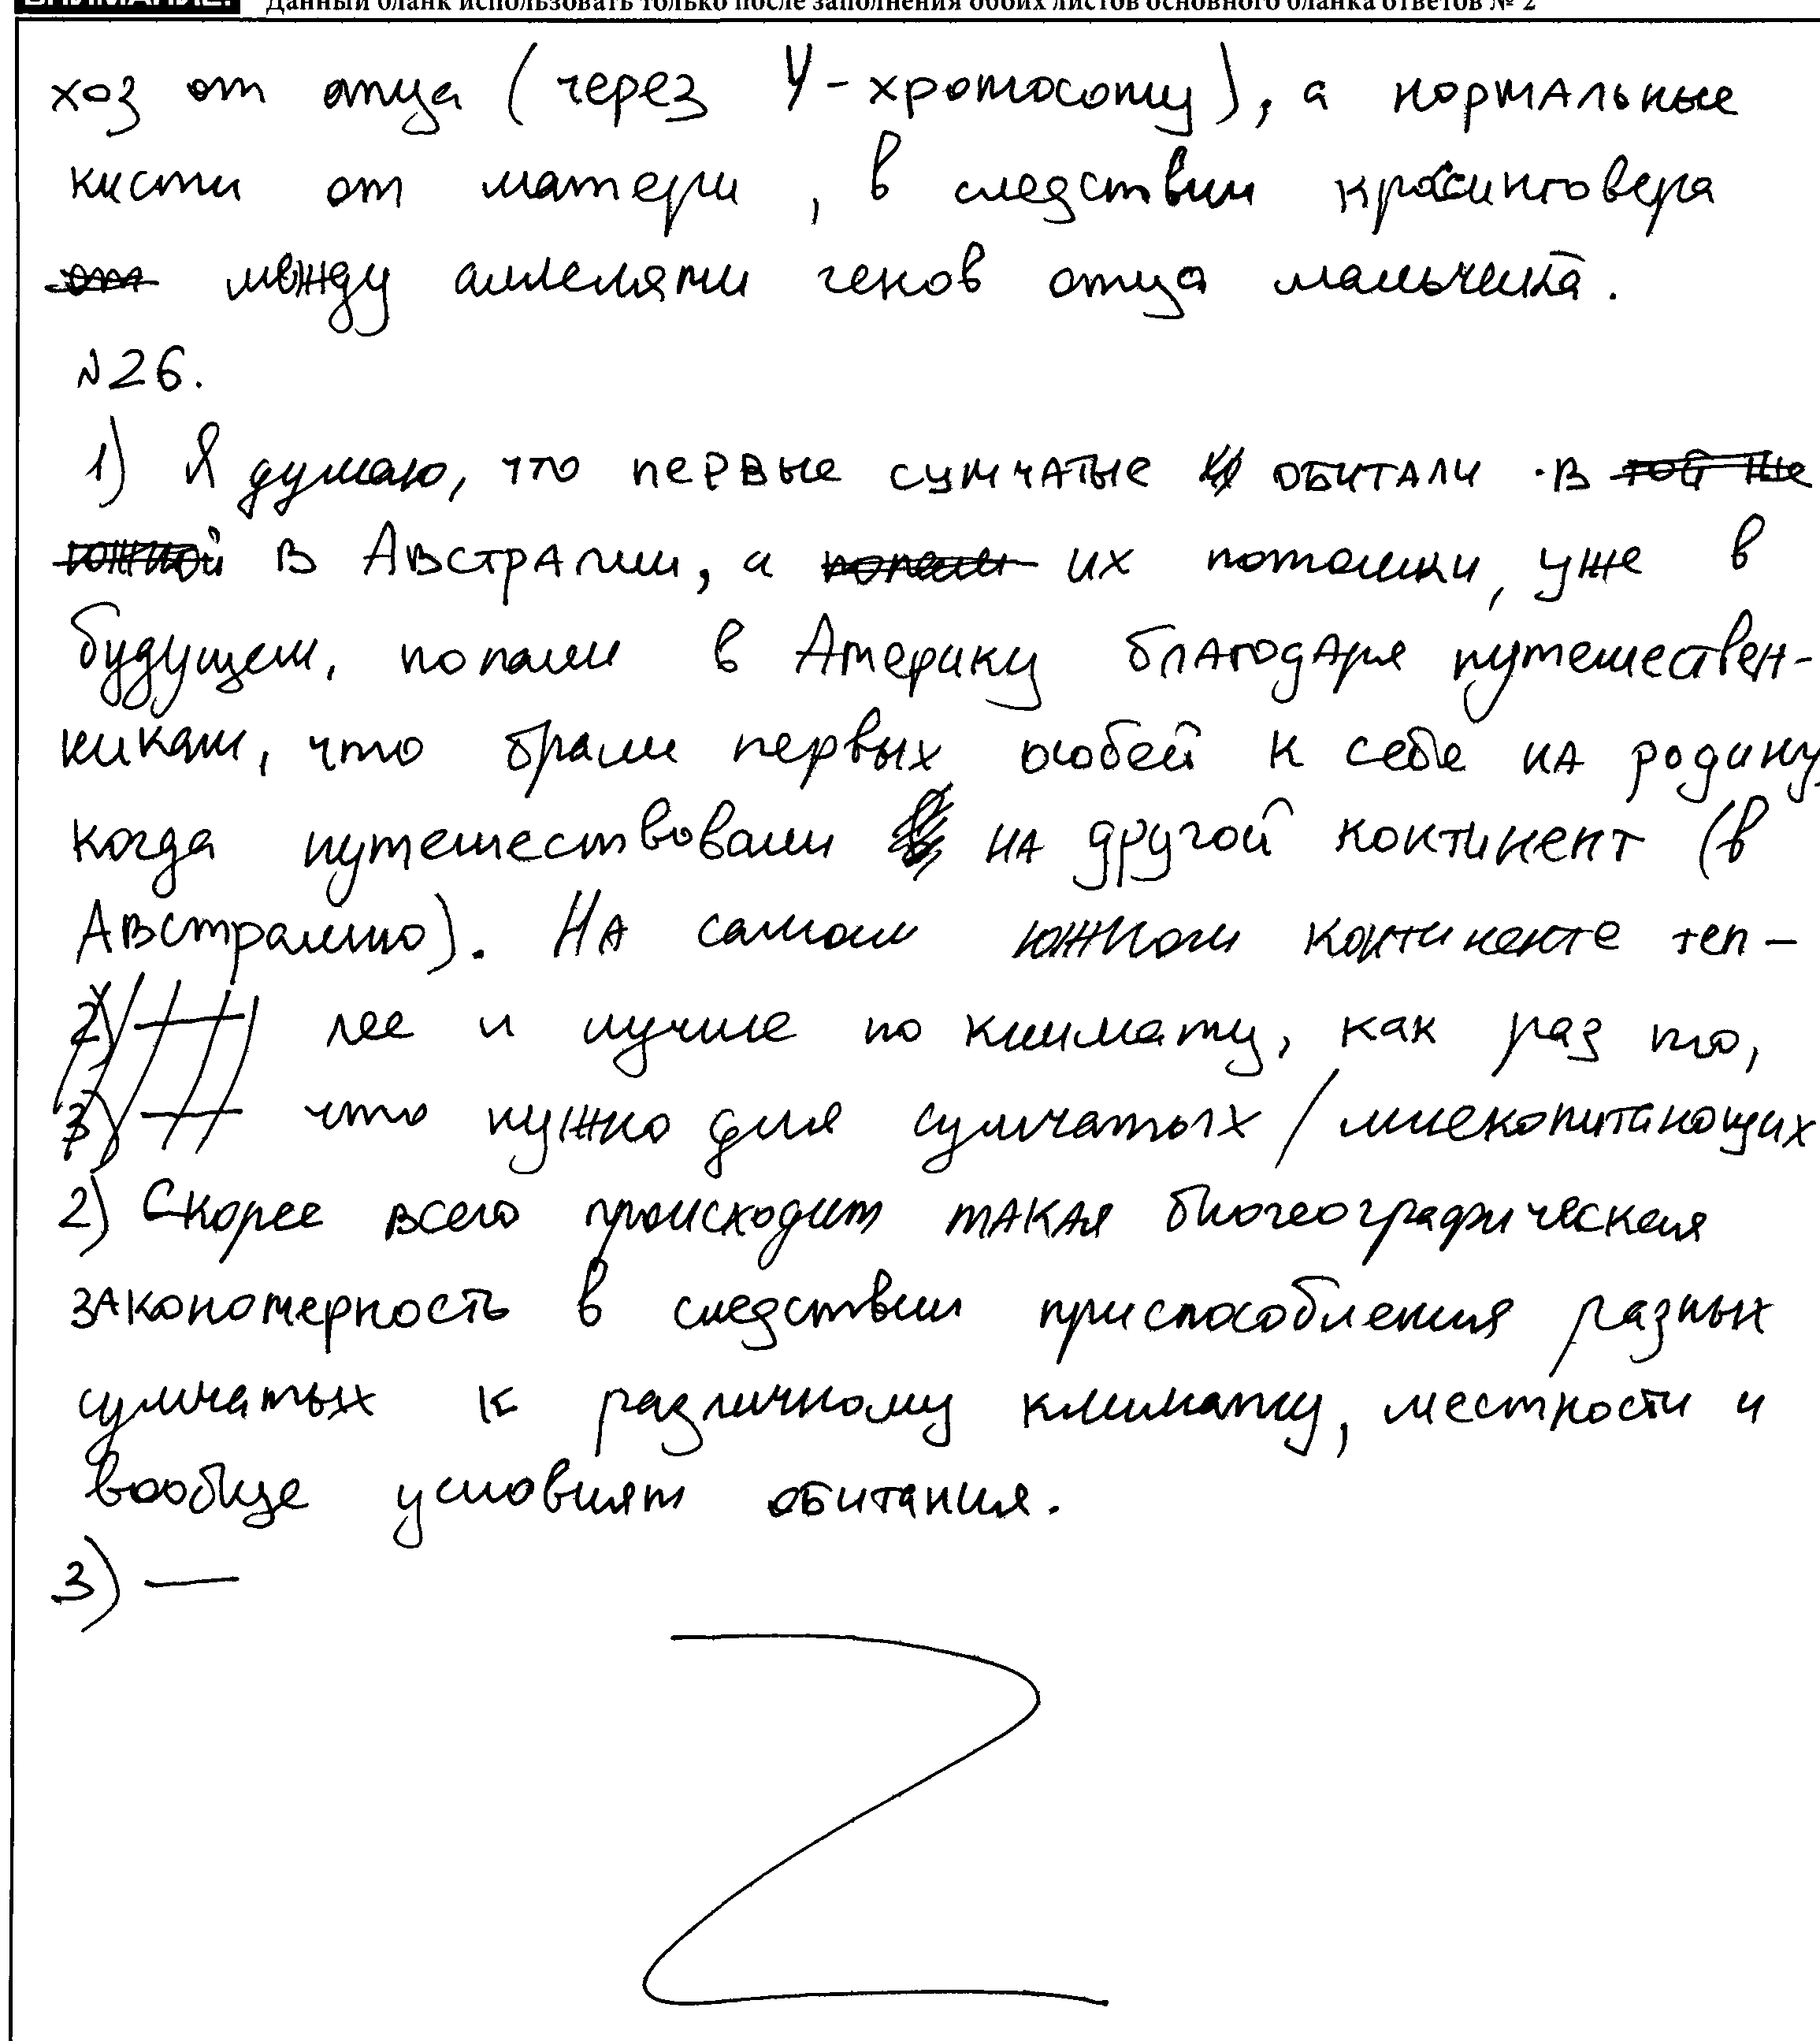 ВНИМАНИЕ! Данный бланк использовать только после заполнения обоих листов основного бланка ответов № 2
хоз от отца (через Y-хромосому), а нормальные
кисти от матери, в следствии кроссинговера
от между аллелями генов отца мальчика.
№26.
1) Я думаю, что первые сумчатые обитали в той же
южной в Австралии, а попали их потомки, уже в
будущем, попали в Америку благодаря путешествен-
никам, что брали первых особей к себе на родину,
когда путешествовали на другой континент (в
Австралию). На самом южном континенте теп-
2) — лее и лучше по климату, как раз то,
3) — что нужно для сумчатых / млекопитающих
2) Скорее всего происходит такая биогеографическая
закономерность в следствии приспособления разных
сумчатых к различному климату, местности и
вообще условиям обитания.
3) —